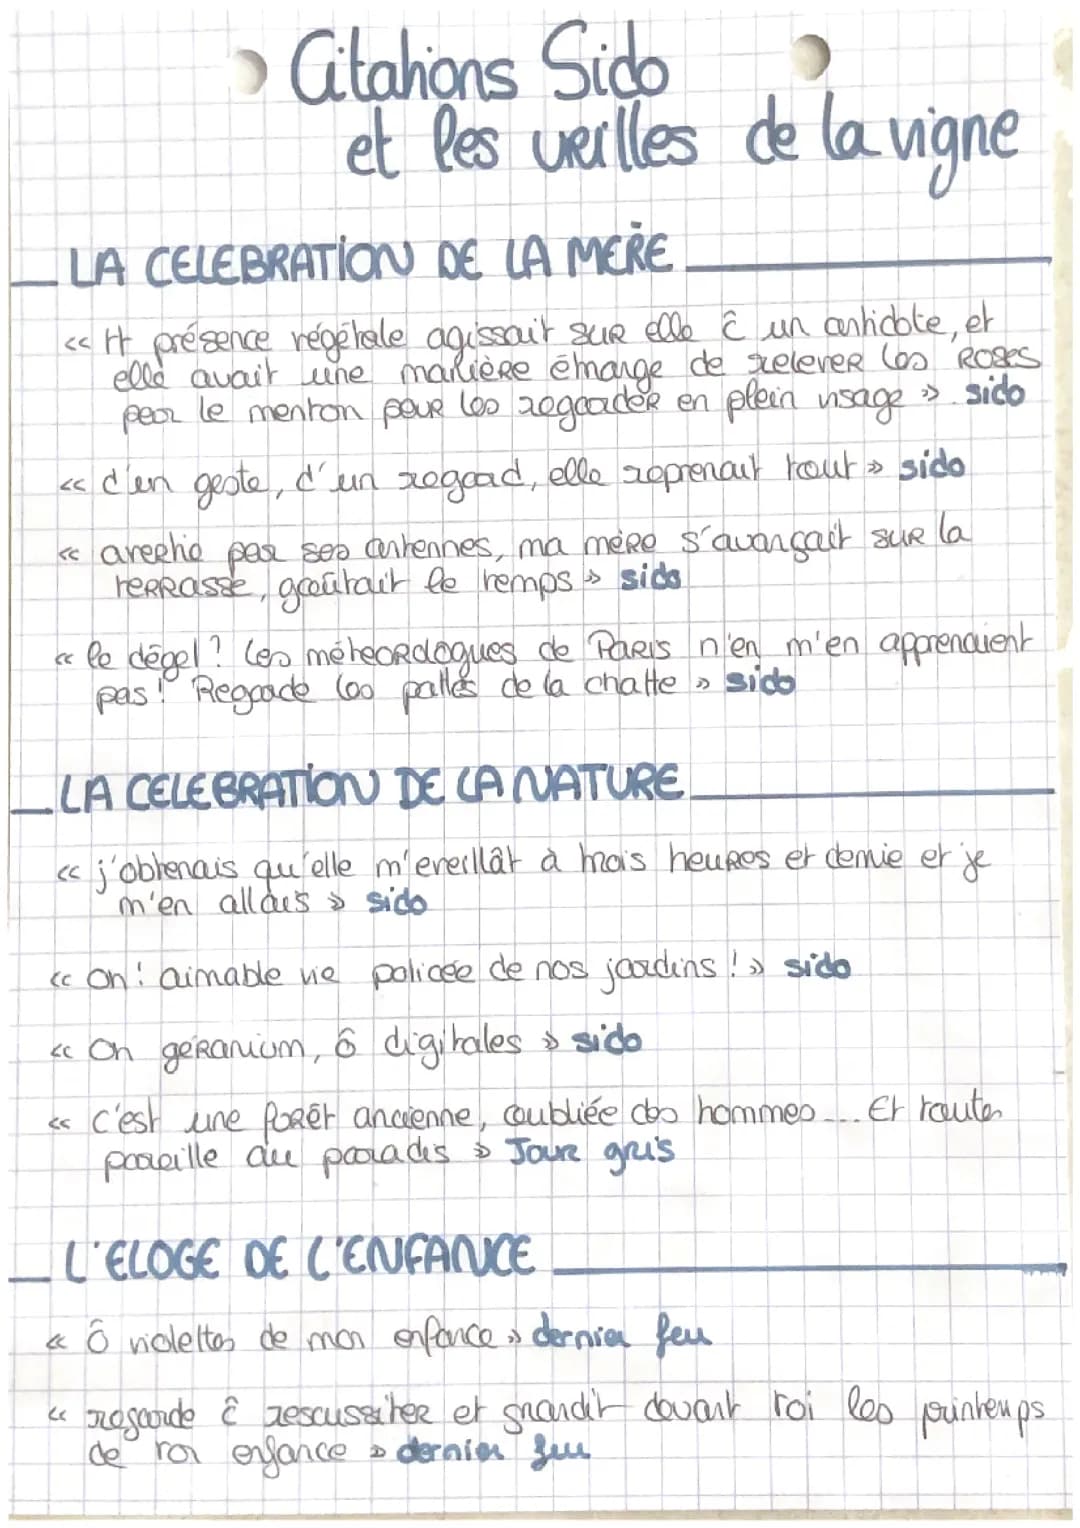 Citations Sido
et les vrilles de la vigne
LA CELEBRATION DE LA MERE
« tt présence végétale agissait sur elle ĉ un antidote, et
elle avait une manière étrange de relever les ROSES
par le menton pour les regarder en plein visage ». sido
« d'un geste, d'un regard, elle reprenait tout » sido
« avertie par ses antennes, ma mère s'avançait sur la
terrasse, goûtait le temps » sido
« le dégel ? les météorologues de Paris n'en m'en apprenaient
pas ! Regarde les pattes de la chatte » sido
LA CELEBRATION DE LA NATURE
« j'obtenais qu'elle m'éveillât à trois heures et demie et je
m'en allais » sido
« oh ! aimable vie policée de nos jardins ! » sido
« Oh géranium, ô digitales » sido
« c'est une forêt ancienne, oubliée des hommes... Et toute
pareille au paradis » Jour gris
L'ELOGE DE L'ENFANCE
« Ô violettes de mon enfance » dernier feu
« regarde ĉ rescussiter et grandit devant toi les printemps
de ton enfance » dernier feu